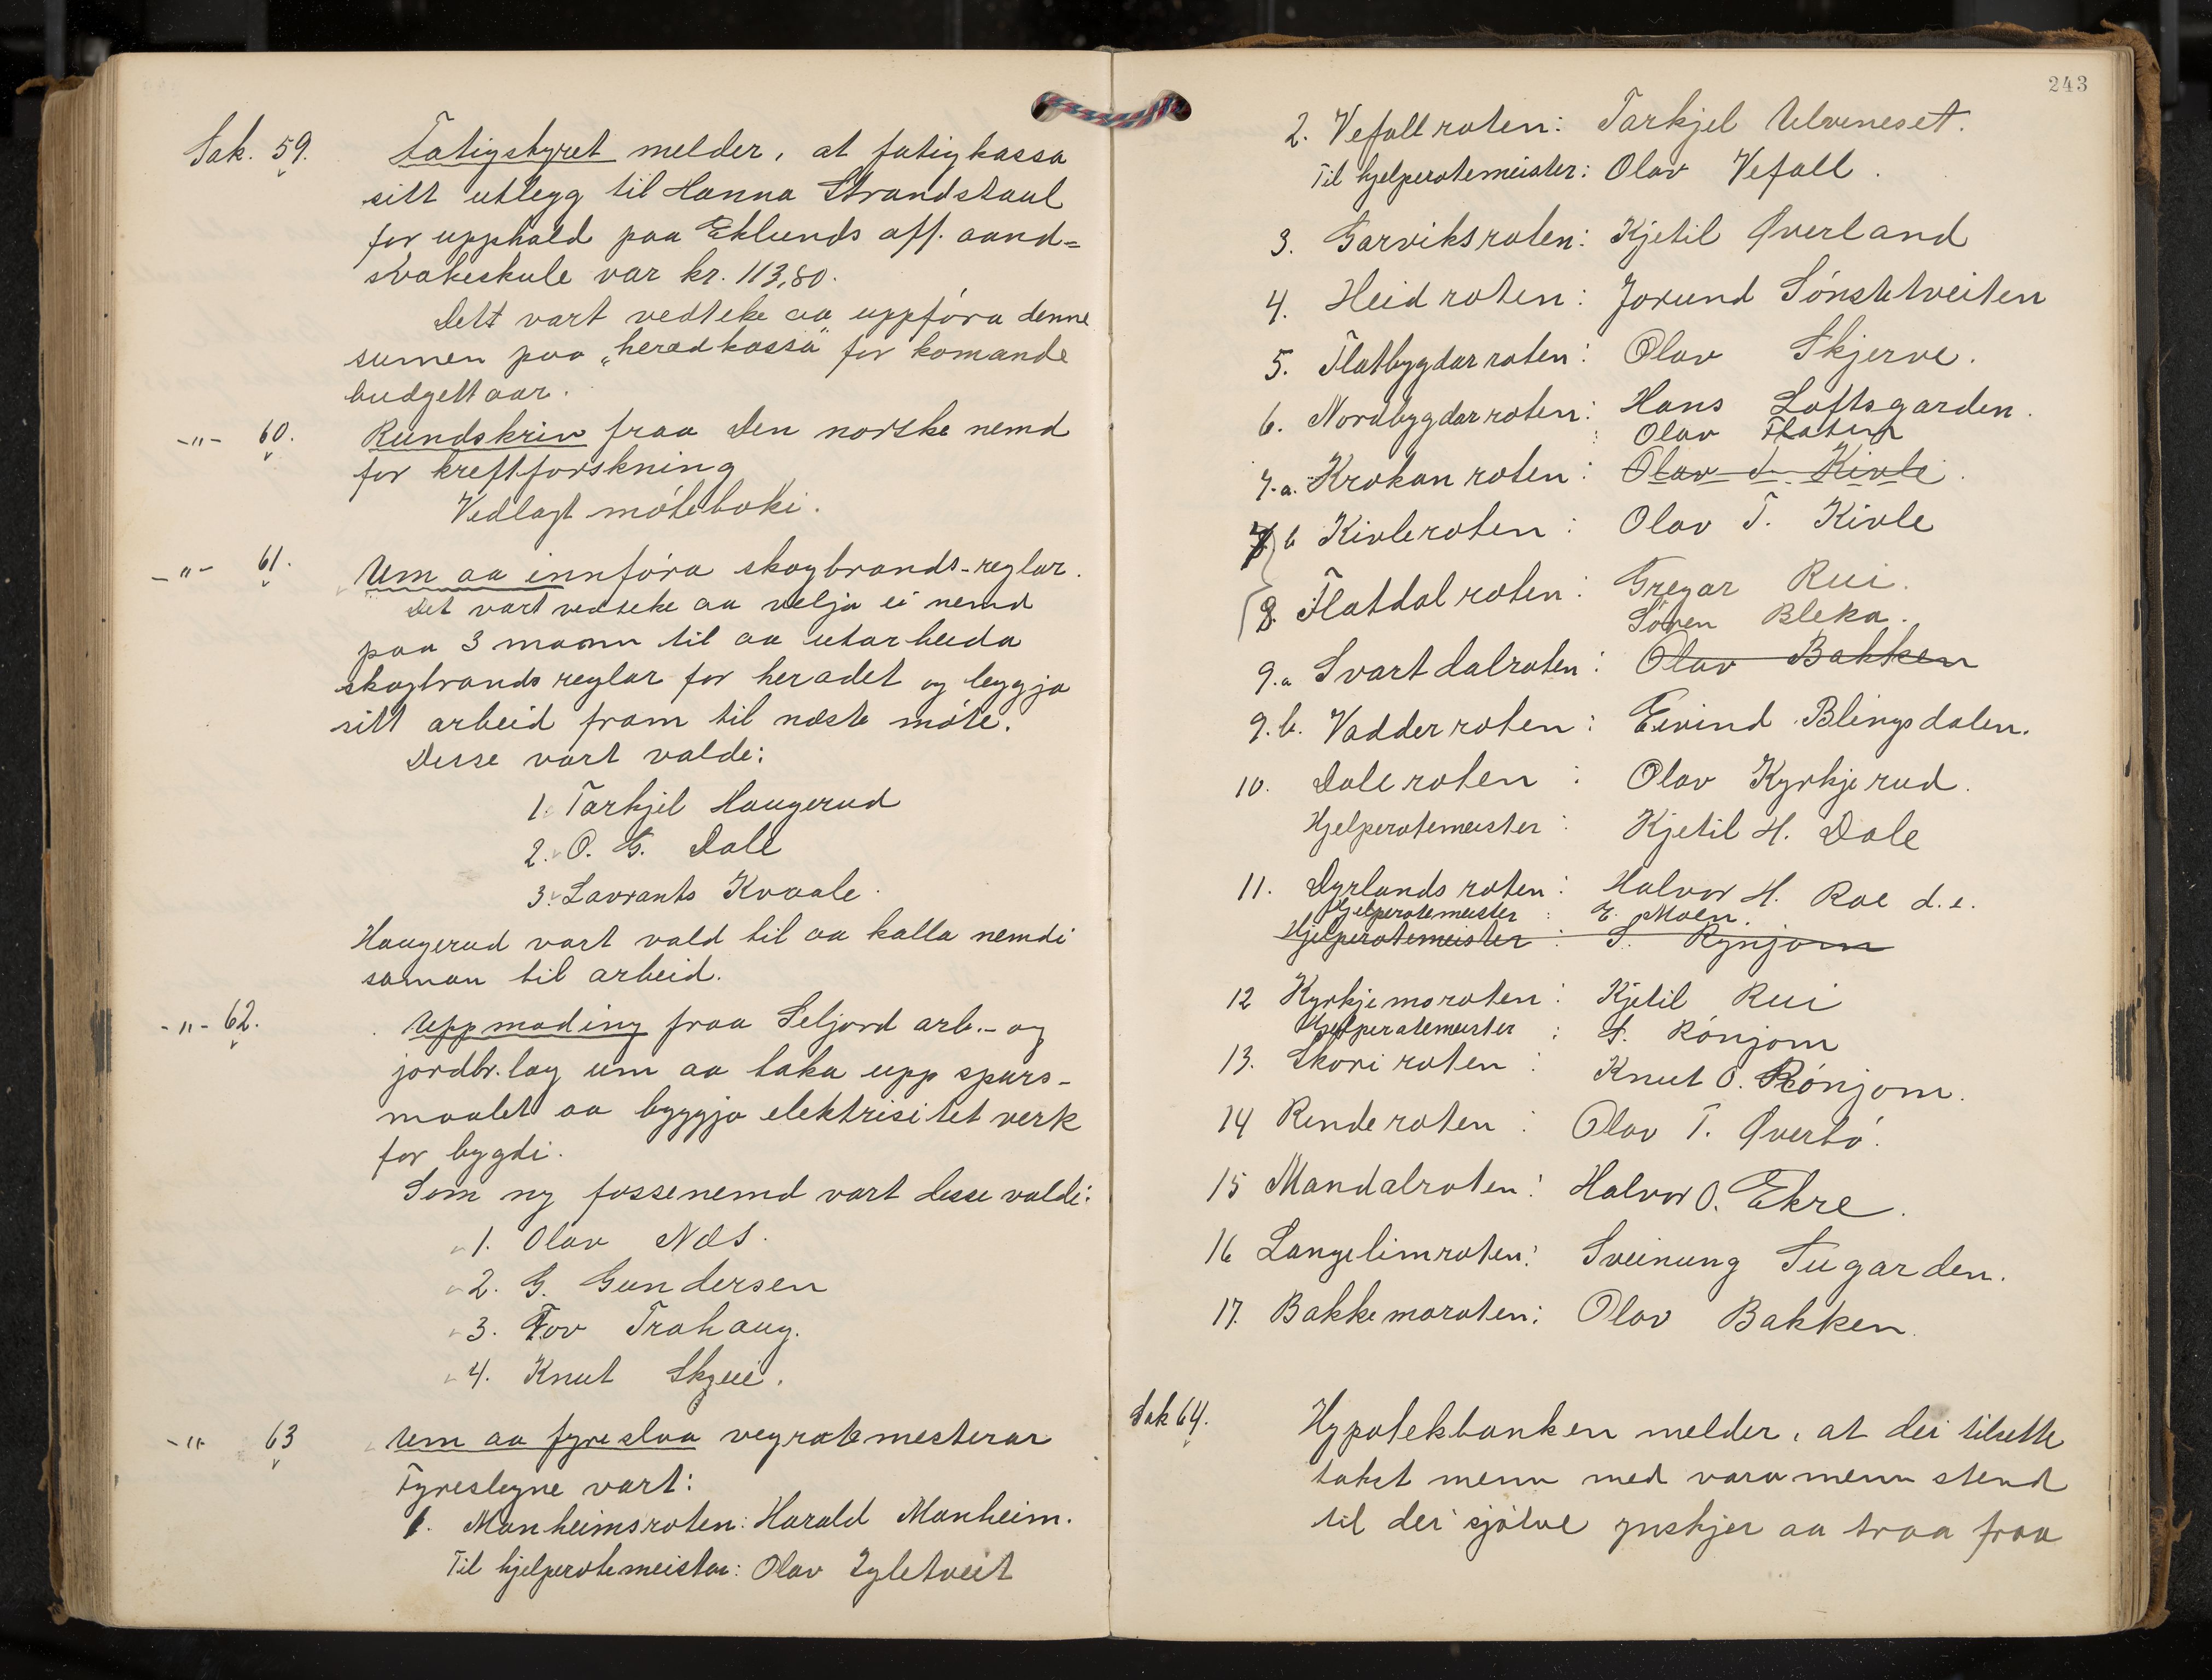 Sak. 59. Fatigstyret melder, at fatigkassa
sitt utlegg til Hanna Strandstaul
for upphald paa Eklunds off. aand-
svakeskule var kr. 113,80.
Dett vart vedteke aa uppfóra denne
sumen paa „heradkassa" for komande
budgettaar.
-"- 60. Rundskriv fraa Den norske nemd
for kreftforskning
Vedlagt móteboki.
-"- 61. Um aa innfóra skogbrands-reglar.
Det vart vedteke aa velja ei nemd
paa 3 mann til aa utarbeida
skogbrandsreglar for heradet og leggja
sitt arbeid fram til næste móte.
Desse vart valde:
1. Tarkjel Haugerud
2. O. G. Dale
3. Lavrants Kvaale.
Haugerud vart vald til aa kalla nemdi
saman til arbeid.
-"- 62. Uppmoding fraa Seljord arb.- og
jordbr.lag um aa taka upp spurs-
maalet aa byggja elektrisitetverk
for bygdi.
Som ny fossenemd vart desse valde:
1. Olav Næs.
2. G. Gundersen
3. Tov Trohaug.
4. Knut Skyeii.
-"- 63 Um aa fyreslaa vegrotemesterar
Fyreslegne vart:
1. Manheimsroten: Harald Manheim.
Til hjelperotemeister: Olav Igletveit
243
2. Vefallroten: Tarkjel Ulveneset.
Til hjelperotemeister: Olav Vefall.
3. Garviksroten: Kjetil Øverland
4. Heidroten: Jorund Sónstetveiten
5. Flatbygdarroten: Olav Skjerve.
6. Nordbygdarroten: Hans Loftsgarden.
Olav Flatin
7.a. Krokanroten: Olav d. Kivle.
b Kivleroten: Olav T. Kivle
8. Flatdalroten: Gregar Rui.
Sóren Bleka.
9.a Svartdalroten: Olav Bakken
9.b. Vadderroten: Eivind Blingsdalen.
10. Daleroten: Olav Kyrkjerud.
Hjelperotemeister: Kjetil H. Dale
11. Dyrlandsroten: Halvor H. Roe d.e.
Hjelperotemeister: E. Moen.
Hjelperotemeister: S. Rynjom
12 Kyrkjemoroten: Kjetil Rui
Hjelperotemeister: S. Rónjom
13. Skoriroten: Knut O. Rónjom.
14 Rinderoten: Olav T. Øverbó.
15 Mandalroten: Halvor O. Ekre.
16 Langelimroten: Sveinung Tugarden.
17. Bakkemoroten: Olav Bakken.
Sak 64. Hypotekbanken melder, at dei tilsette
takst menn med varamenn stend
til dei sjólve ynskjer aa traa fraa